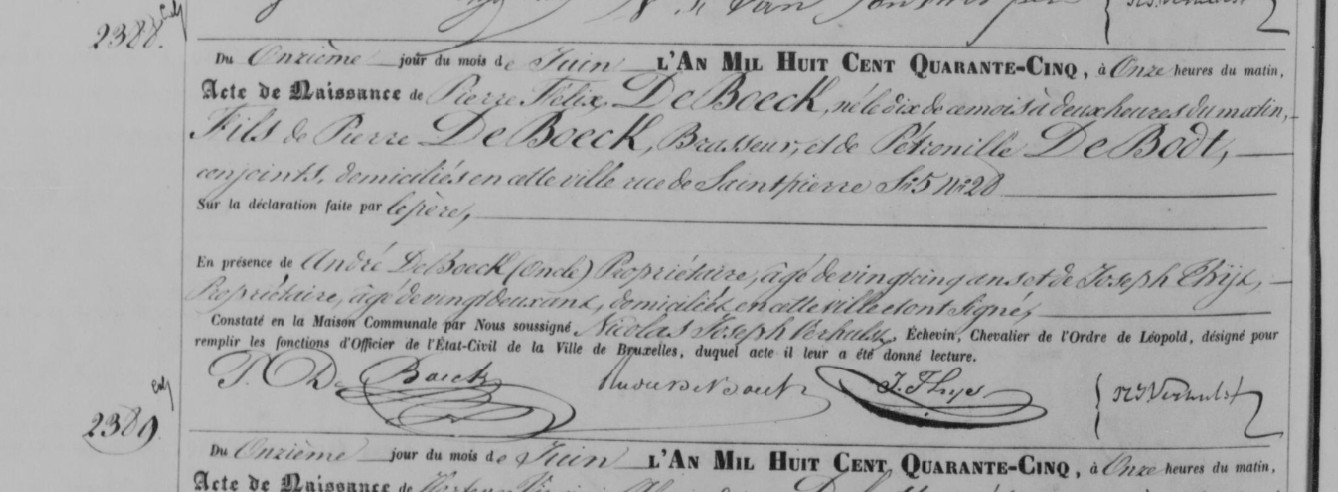 2388.
Du Onzième jour du mois de Juin L'AN MIL HUIT CENT QUARANTE-CINQ, à Onze heures du matin,
Acte de Naissance de Pierre Félix, De Boeck, né le dix de ce mois à deux heures du matin,
Fils de Pierre De Boeck, Brasseur, et de Pétronille De Bodt,
conjoints, domiciliés en cette ville rue de Saint pierre Sn 5 Nr 28
Sur la déclaration faite par le père,
En présence de André De Boeck (Oncle) Propriétaire, âgé de vingt cinq ans et de Joseph Thijs,
Propriétaire, âgé de vingt deux ans, domiciliés en cette ville et ont Signé,
Constaté en la Maison Communale par Nous soussigné Nicolas Joseph Verhulst, Échevin, Chevalier de l'Ordre de Léopold, désigné pour
remplir les fonctions d'Officier de l'État-Civil de la Ville de Bruxelles, duquel acte il leur a été donné lecture.
P. De Boeck J. Thys NJ Verhulst
2389.
Du Onzième jour du mois de Juin L'AN MIL HUIT CENT QUARANTE-CINQ, à Onze heures du matin,
Acte de Naissance de